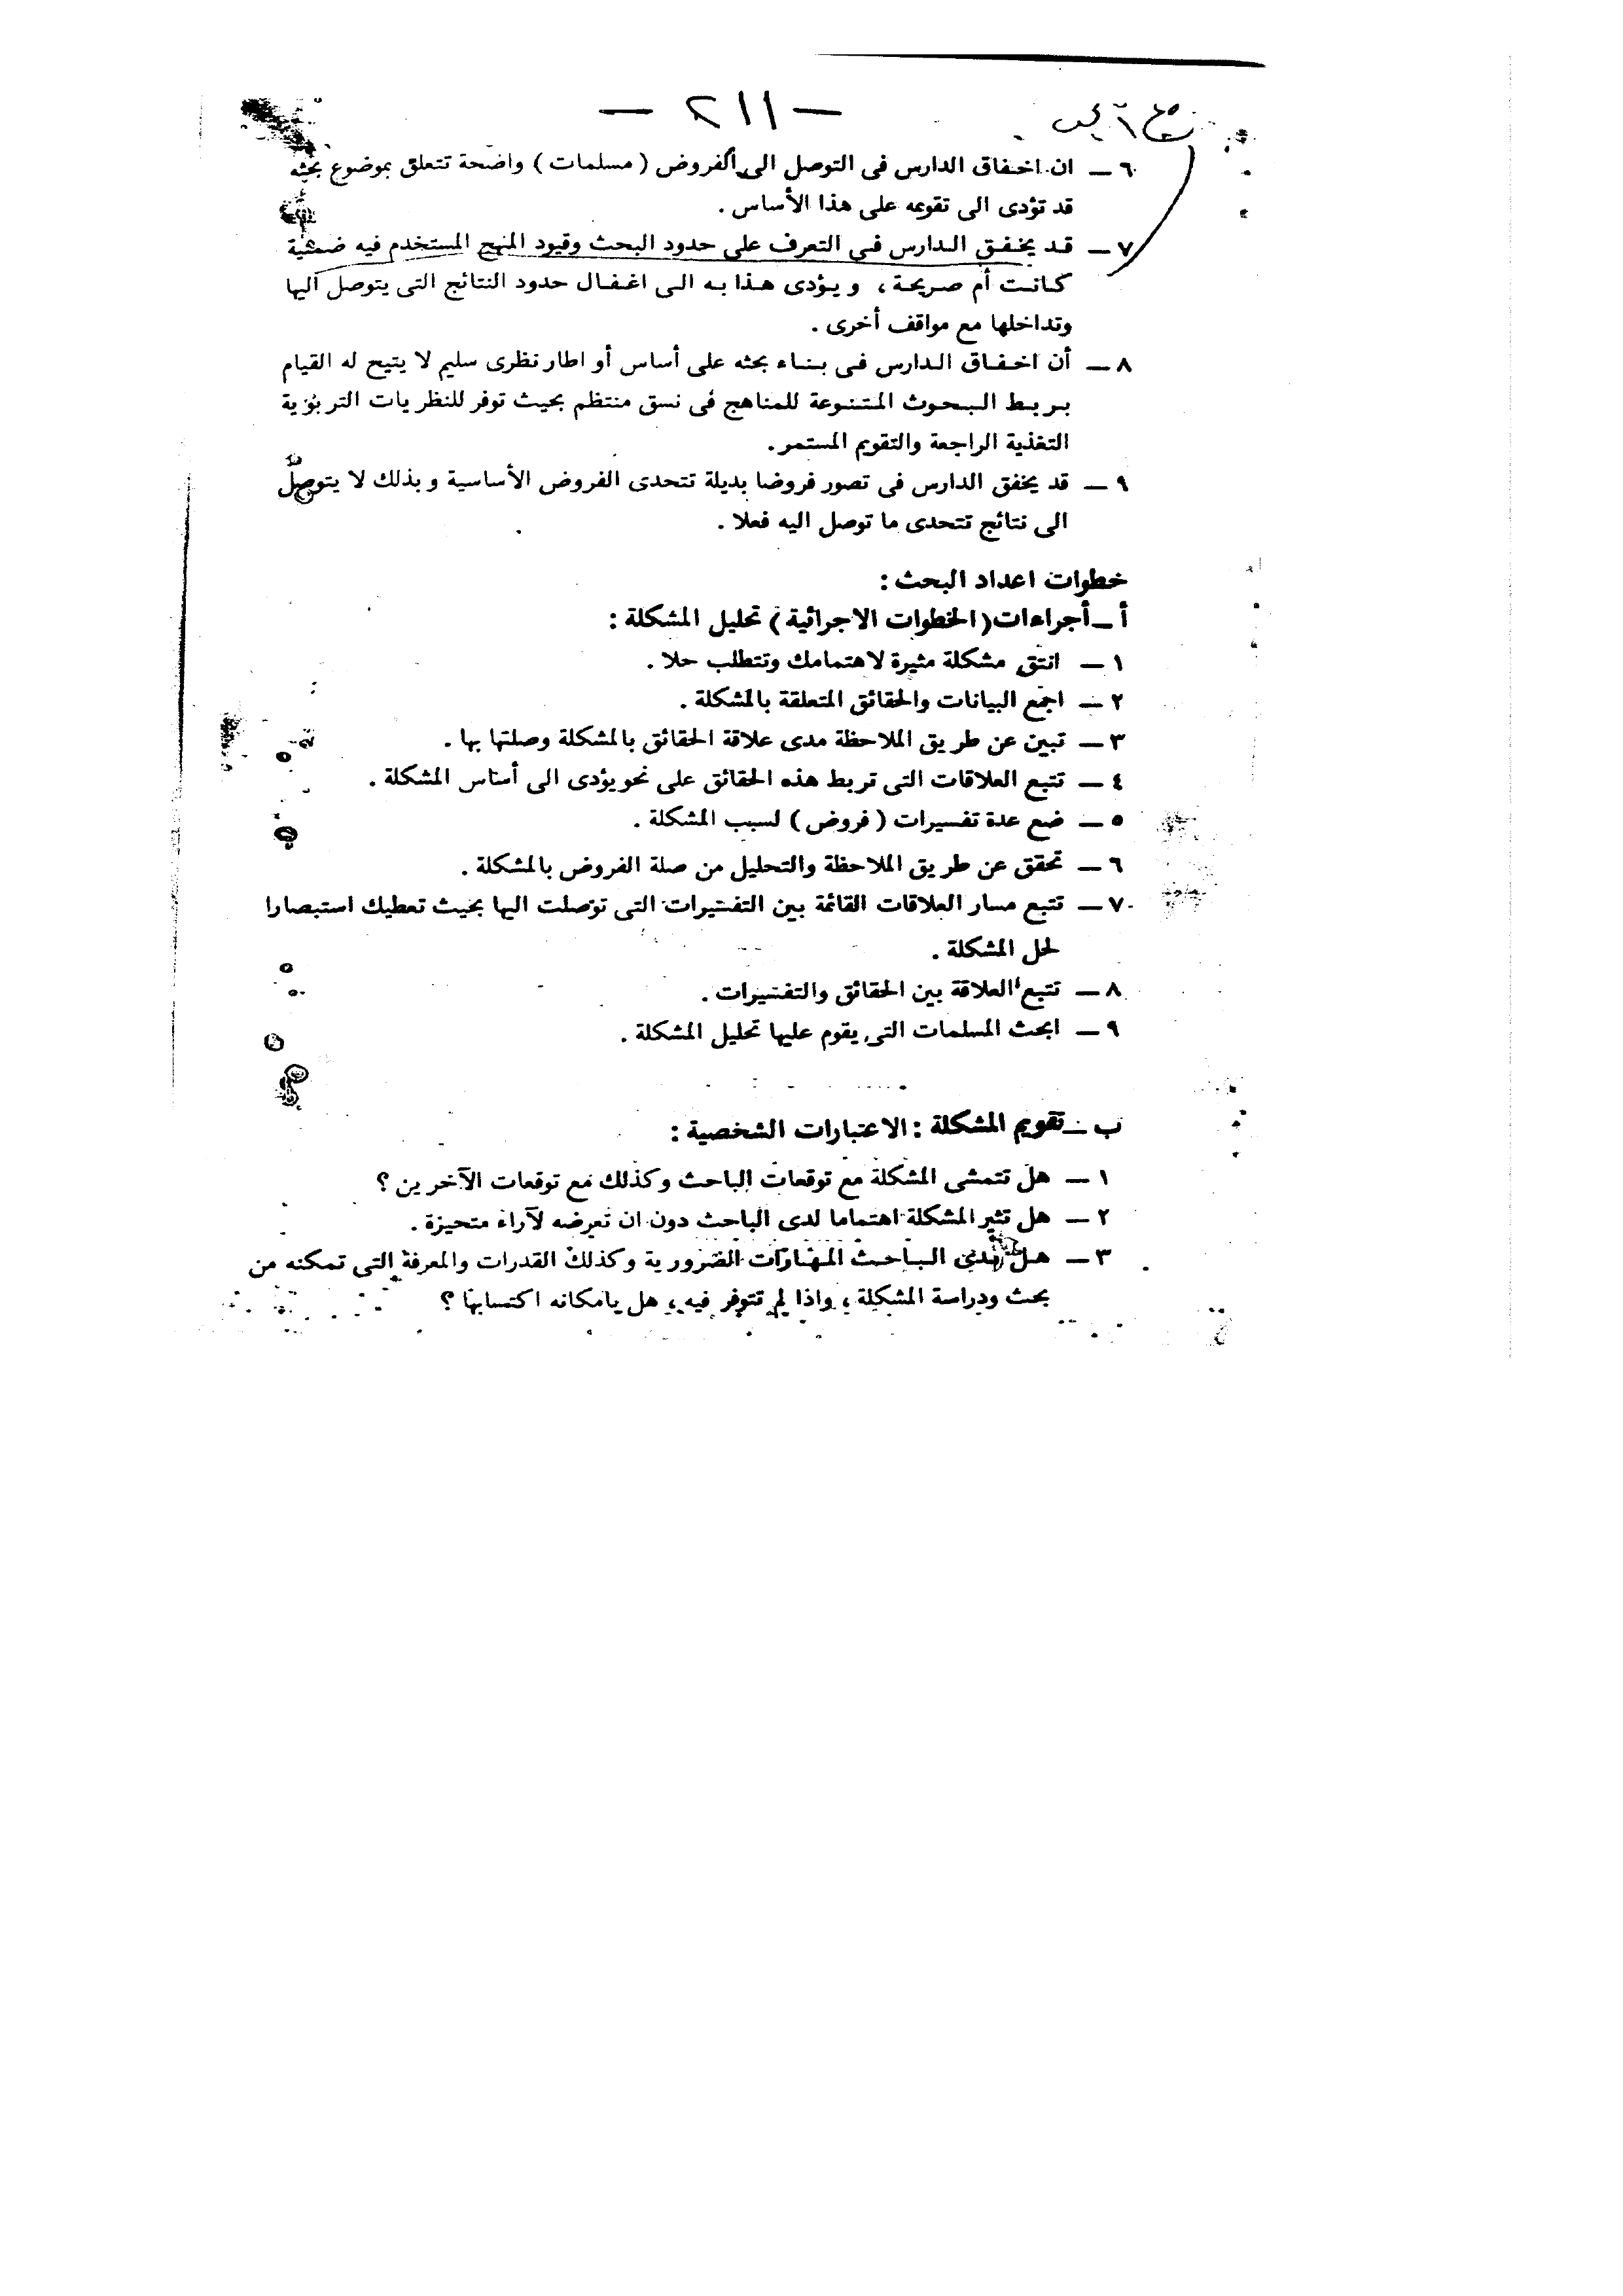 — ٢١١ —
٦ — ان اخفاق الدارس فى التوصل الى الفروض (مسلمات) واضحة تتعلق بموضوع بحثه
قد تؤدى الى تقويمه على هذا الأساس .
٧ — قد يخفق الدارس فى التعرف على حدود البحث وقيود المنهج المستخدم فيه ضمنية
كانت أم صريحة ، ويؤدى هذا به الى اغفال حدود النتائج التى يتوصل اليها
وتداخلها مع مواقف أخرى .
٨ — أن اخفاق الدارس فى بناء بحثه على أساس أو اطار نظرى سليم لا يتيح له القيام
بربط البحوث المتنوعة للمناهج فى نسق منتظم بحيث توفر للنظريات التربوية
التغذية الراجعة والتقويم المستمر .
٩ — قد يخفق الدارس فى تصور فروضا بديلة تتحدى الفروض الأساسية وبذلك لا يتوصل
الى نتائج تتحدى ما توصل اليه فعلا .
خطوات اعداد البحث :
أ — أجراءات (الخطوات الاجرائية) تحليل المشكلة :
١ — انتق مشكلة مثيرة لاهتمامك وتتطلب حلا .
٢ — اجمع البيانات والحقائق المتعلقة بالمشكلة .
٣ — تبين عن طريق الملاحظة مدى علاقة الحقائق بالمشكلة وصلتها بها .
٤ — تتبع العلاقات التى تربط هذه الحقائق على نحو يؤدى الى أساس المشكلة .
٥ — ضع عدة تفسيرات (فروض) لسبب المشكلة .
٦ — تحقق عن طريق الملاحظة والتحليل من صلة الفروض بالمشكلة .
٧ — تتبع مسار العلاقات القائمة بين التفسيرات التى توصلت اليها بحيث تعطيك استبصارا
لحل المشكلة .
٨ — تتبع العلاقة بين الحقائق والتفسيرات .
٩ — ابحث المسلمات التى يقوم عليها تحليل المشكلة .
ب — تقويم المشكلة : الاعتبارات الشخصية :
١ — هل تتمشى المشكلة مع توقعات الباحث وكذلك مع توقعات الآخرين ؟
٢ — هل تثير المشكلة اهتماما لدى الباحث دون ان تعرضه لآراء متحيزة .
٣ — هل لدى الباحث المهارات الضرورية وكذلك القدرات والمعرفة التى تمكنه من
بحث ودراسة المشكلة ، واذا لم تتوفر فيه ، هل بامكانه اكتسابها ؟